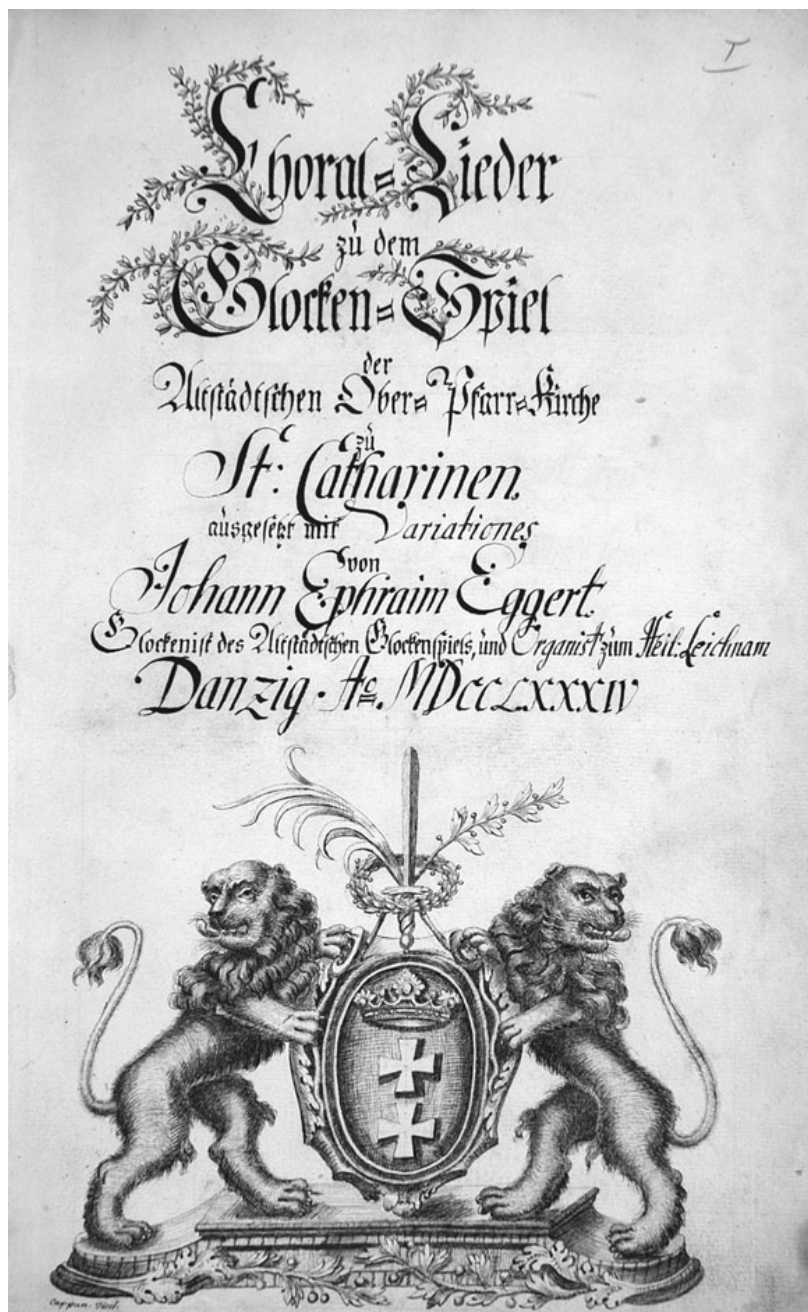 I
Choral=Lieder
zu dem
Glocken=Spiel
der
Altstädtschen Ober=Pfarr=Kirche
zu
St: Catharinen,
ausgesetzt mit Variationes
von
Johann Ephraim Eggert.
Glockenist des Altstädtschen Glockenspiels, und Organist zum Heil: Leichnam
Danzig. Ao. MDCCLXXXIV